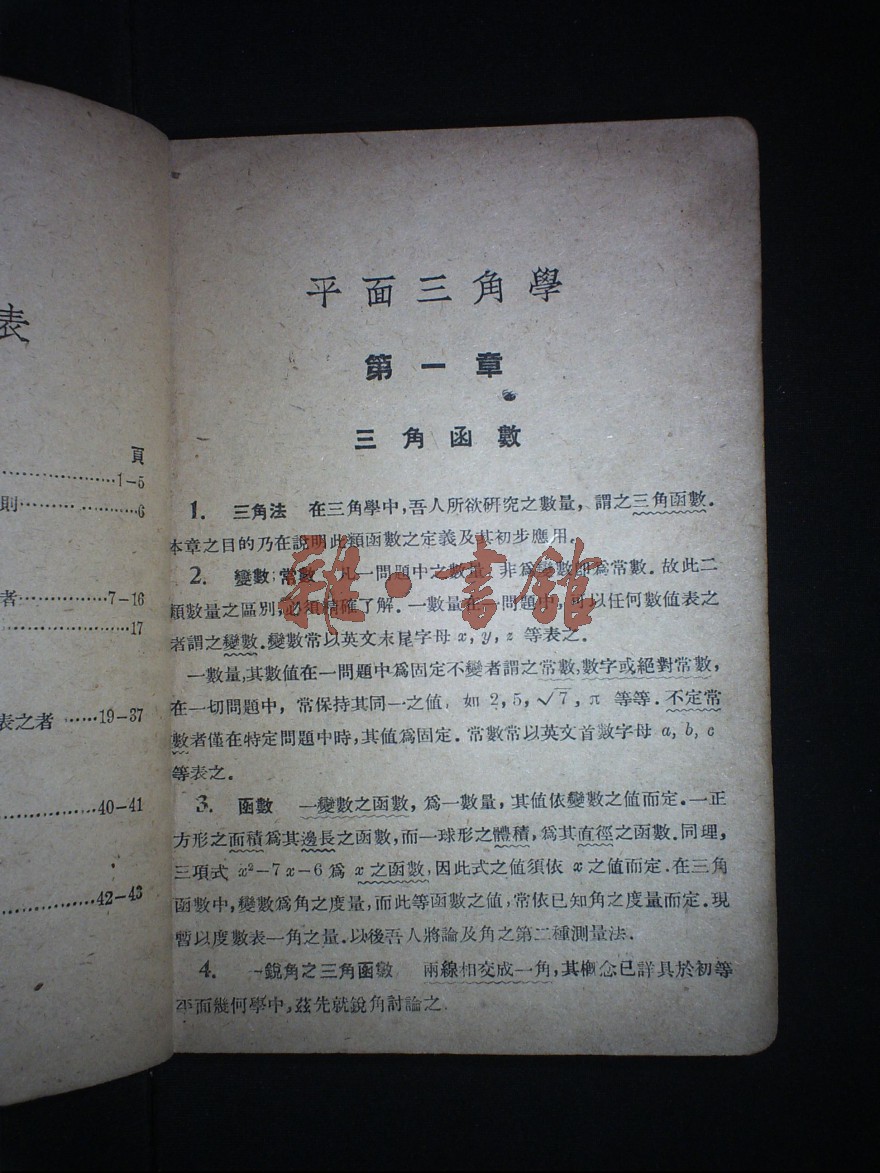 表
頁
1-5
則 6
者 7-16
17
表之者 19-37
40-41
42-43
平面三角學
第一章
三角函數
1. 三角法 在三角學中,吾人所欲研究之數量,謂之三角函數.
本章之目的乃在說明此類函數之定義及其初步應用.
2. 變數;常數 凡一問題中之數量,非爲變數即爲常數.故此二
類數量之區別,必須精確了解.一數量在一問題中,可以任何數值表之
者謂之變數.變數常以英文末尾字母 x, y, z 等表之.
一數量,其數值在一問題中爲固定不變者謂之常數,數字或絕對常數,
在一切問題中,常保持其同一之值,如 2, 5, √7, π 等等.不定常
數者僅在特定問題中時,其值爲固定.常數常以英文首數字母 a, b, c
等表之.
3. 函數 一變數之函數,爲一數量,其值依變數之值而定.一正
方形之面積爲其邊長之函數,而一球形之體積,爲其直徑之函數.同理,
三項式 x²-7x-6 爲 x 之函數,因此式之值須依 x 之值而定.在三角
函數中,變數爲角之度量,而此等函數之值,常依已知角之度量而定.現
暫以度數表一角之量.以後吾人將論及角之第二種測量法.
4. 一銳角之三角函數 兩線相交成一角,其概念已詳具於初等
平面幾何學中,茲先就銳角討論之.
雜·書館